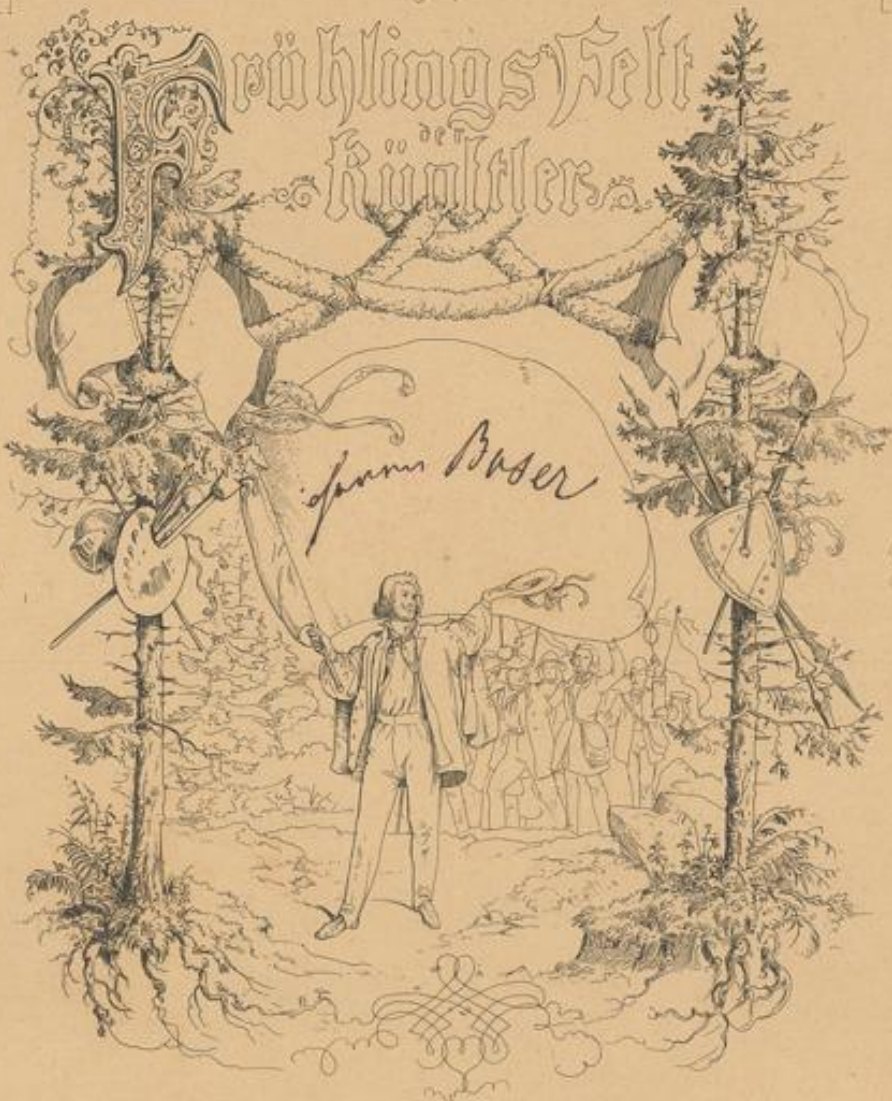 Frühlings Fest
der
Künstler
Baser